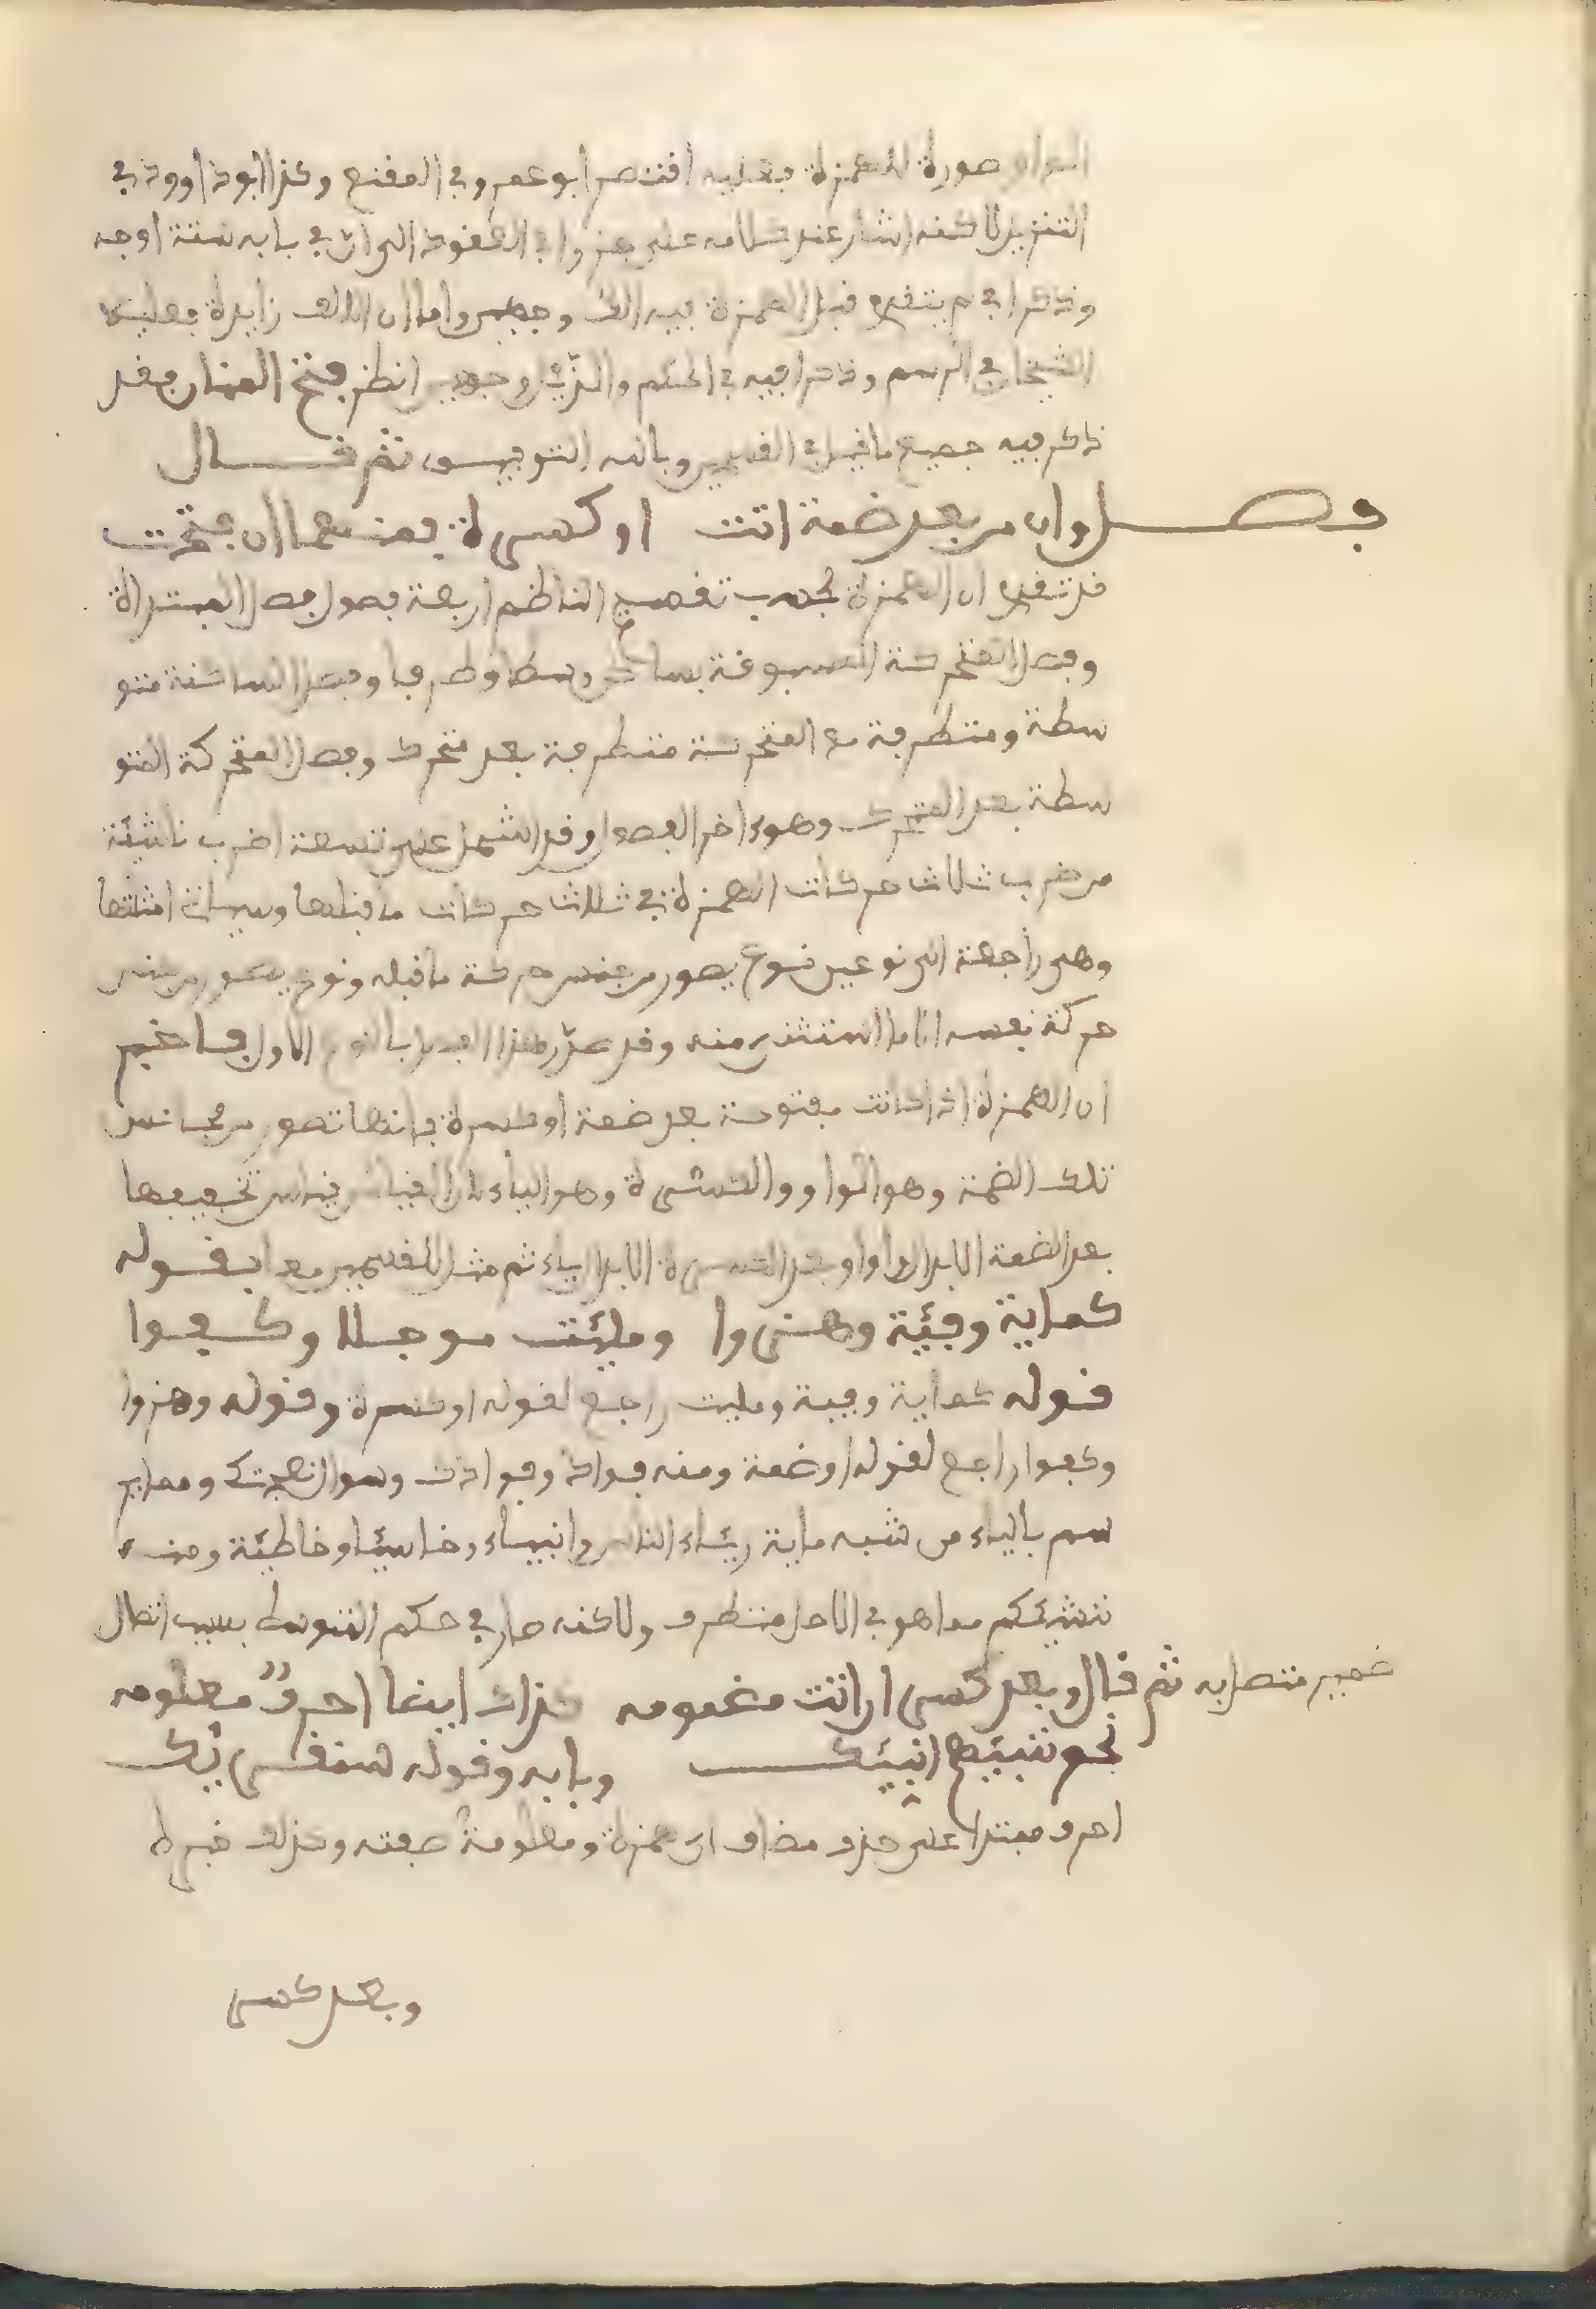 الواو صورة للهمزة فعليه اقتصر ابو عمرو في المقنع وكذا ابو داوود في
التنزيل لاكنه اشار عند كلامه على جزوا في العقود الى ان في بابه ستة اوجه
وذكرا في لم يتقدم قبل الهمزة فيه الف وجهين واما ان الالف زايدة فعليه
الشيخان في الرسم وذكرا فيه في المحكم والذيل وجهين انظر فتح المنان فقد
ذكر فيه جميع ما قيل في القسمين وبالله التوفيق ثم قال
فصل وان من بعد ضمة اتت او كسرة فمنهما ان فتحت
قد تقدم ان للهمزة بحسب تقسيم الناظم اربعة فصول فصل المبتداة
وفصل المتحركة المسبوقة بساكن وسطا وطرفا وفصل الساكنة متو
سطة ومتطرفة مع المتحركة متطرفة بعد متحرك وفصل المتحركة المتو
سطة بعد المتحرك وهو ءاخر الفصول وقد اشتمل على تسعة اضرب ناشئة
من ضرب ثلاث حركات الهمزة في ثلاث حركات ما قبلها وسياتي امثلتها
وهي راجعة الى نوعين نوع يصور من جنس حركة ما قبله ونوع يصور من جنس
حركة نفسه الا ما استثني منه وقد صدر هذا الفصل بالنوع الاول فاخبر
ان الهمزة اذا كانت مفتوحة بعد ضمة او كسرة فانها تصور من مجانس
تلك الضمة وهو الواو والكسرة وهو الياء لان القياس في تخفيفها
بعد الضمة الابدال واوا وبعد الكسرة الابدال ياء ثم مثل للقسمين معا بقوله
كماية وفئة وهزوا وملئت موجلا وكفوا
قوله كماية وفية ومليت راجع لقوله او كسرة وقوله وهزوا
وكفوا راجع لقوله او ضمة ومنه فواد وفوادك وسوال نعجتك ومما ير
سم بالياء من شبه ماية رئاء الناس وانبياء وخاسيا وخاطئة ومنه
ننشئكم مما هو في الاصل متطرف ولاكنه صار في حكم المتوسط بسبب اتصال
ضمير متصل به ثم قال وبعد كسر ان اتت مضمومه كذاك ايضا احرف معلومه
نحو ننبئهم انبئك وبابه وقوله سنقرئك
احرف مبتدا على حذف مضاف اي همزة ومعلومة صفته وكذلك خبره
وبعد كسر